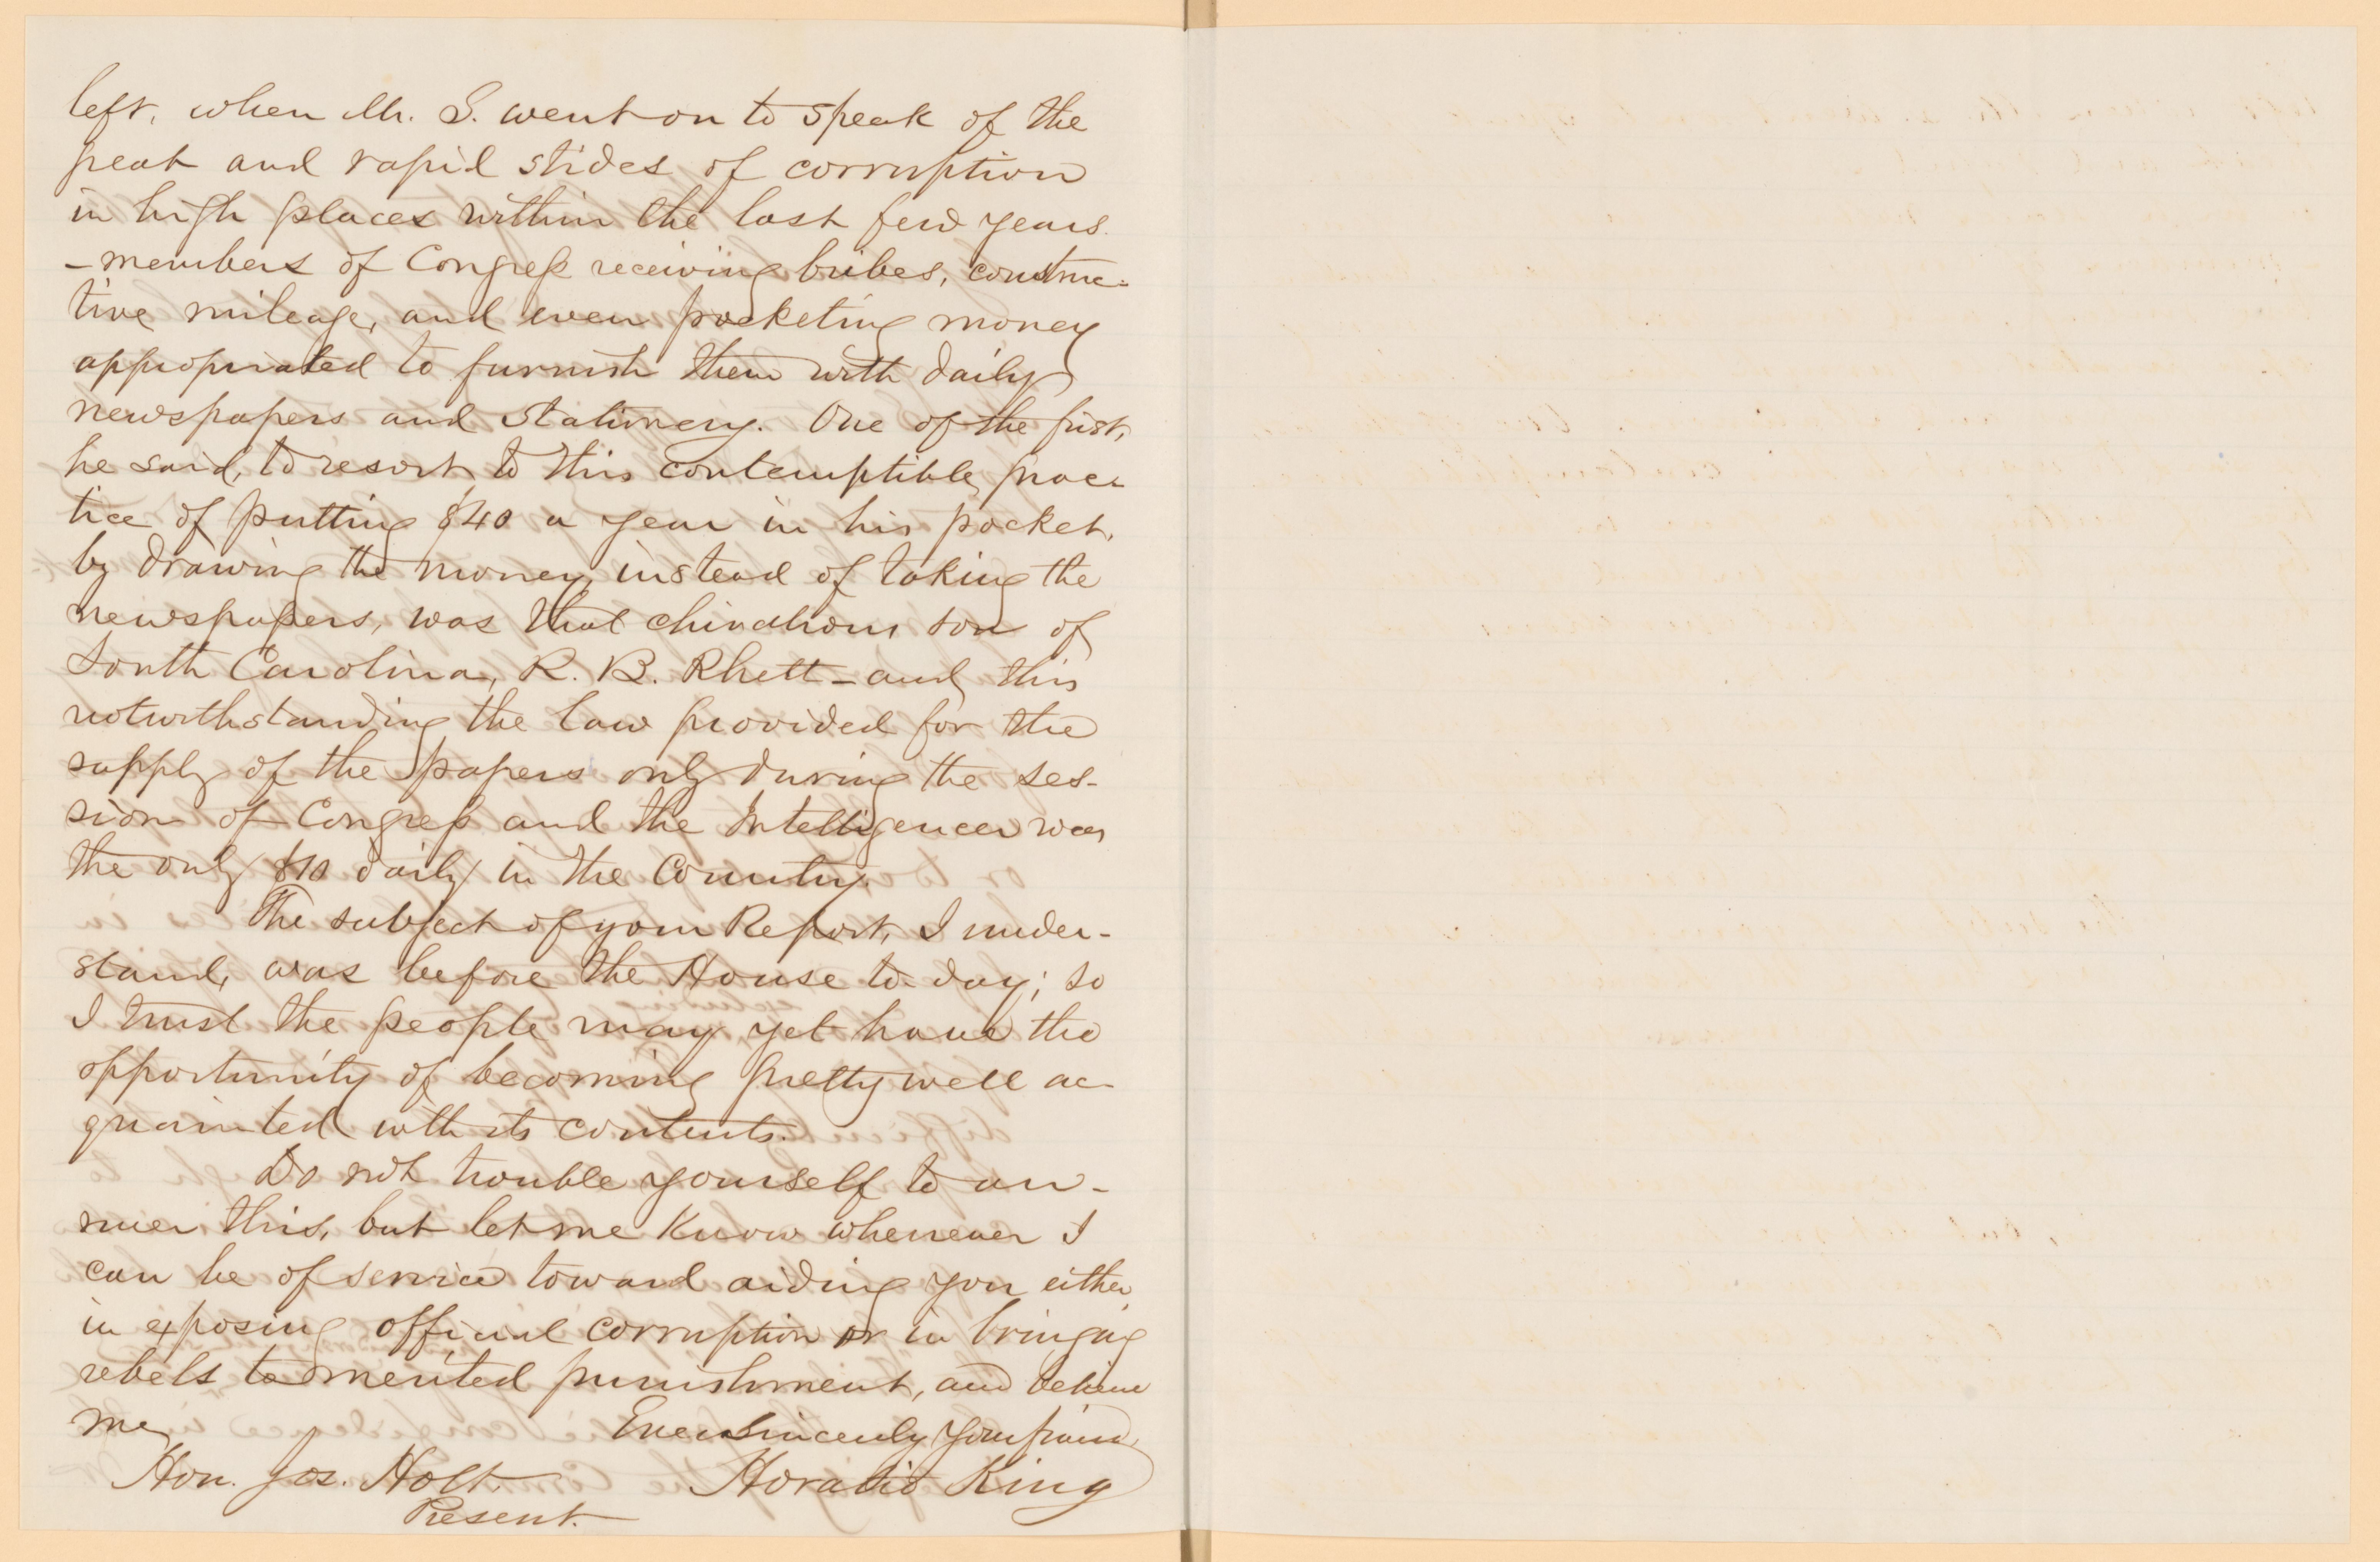 left, when Mr. S. went on to speak of the
great and rapid strides of corruption
in high places within the last few years.
– members of Congress receiving bribes, construc-
tive mileage, and even pocketing money
appropriated to furnish them with daily
newspapers and stationery. One of the first,
he said, to resort to this contemptible prac-
tice of putting $40 a year in his pocket,
by drawing the money, instead of taking the
newspapers, was that chivalrous son of
South Carolina, R. B. Rhett – and this
notwithstanding the law provided for the
supply of the papers only during the ses-
sion of Congress and the Intelligencer was
the only $10 daily in the Country.
The subject of your Report, I under-
stand, was before the House to-day; so
I trust the people may yet have the
opportunity of becoming pretty well ac-
quainted with its contents.
Do not trouble yourself to an-
swer this, but let me know whenever I
can be of service toward aiding you either
in exposing official corruption or in bringing
rebels to merited punishment, and believe
me, Ever Sincerely Your friend,
Hon. Jos. Holt. Horatio King
Present.